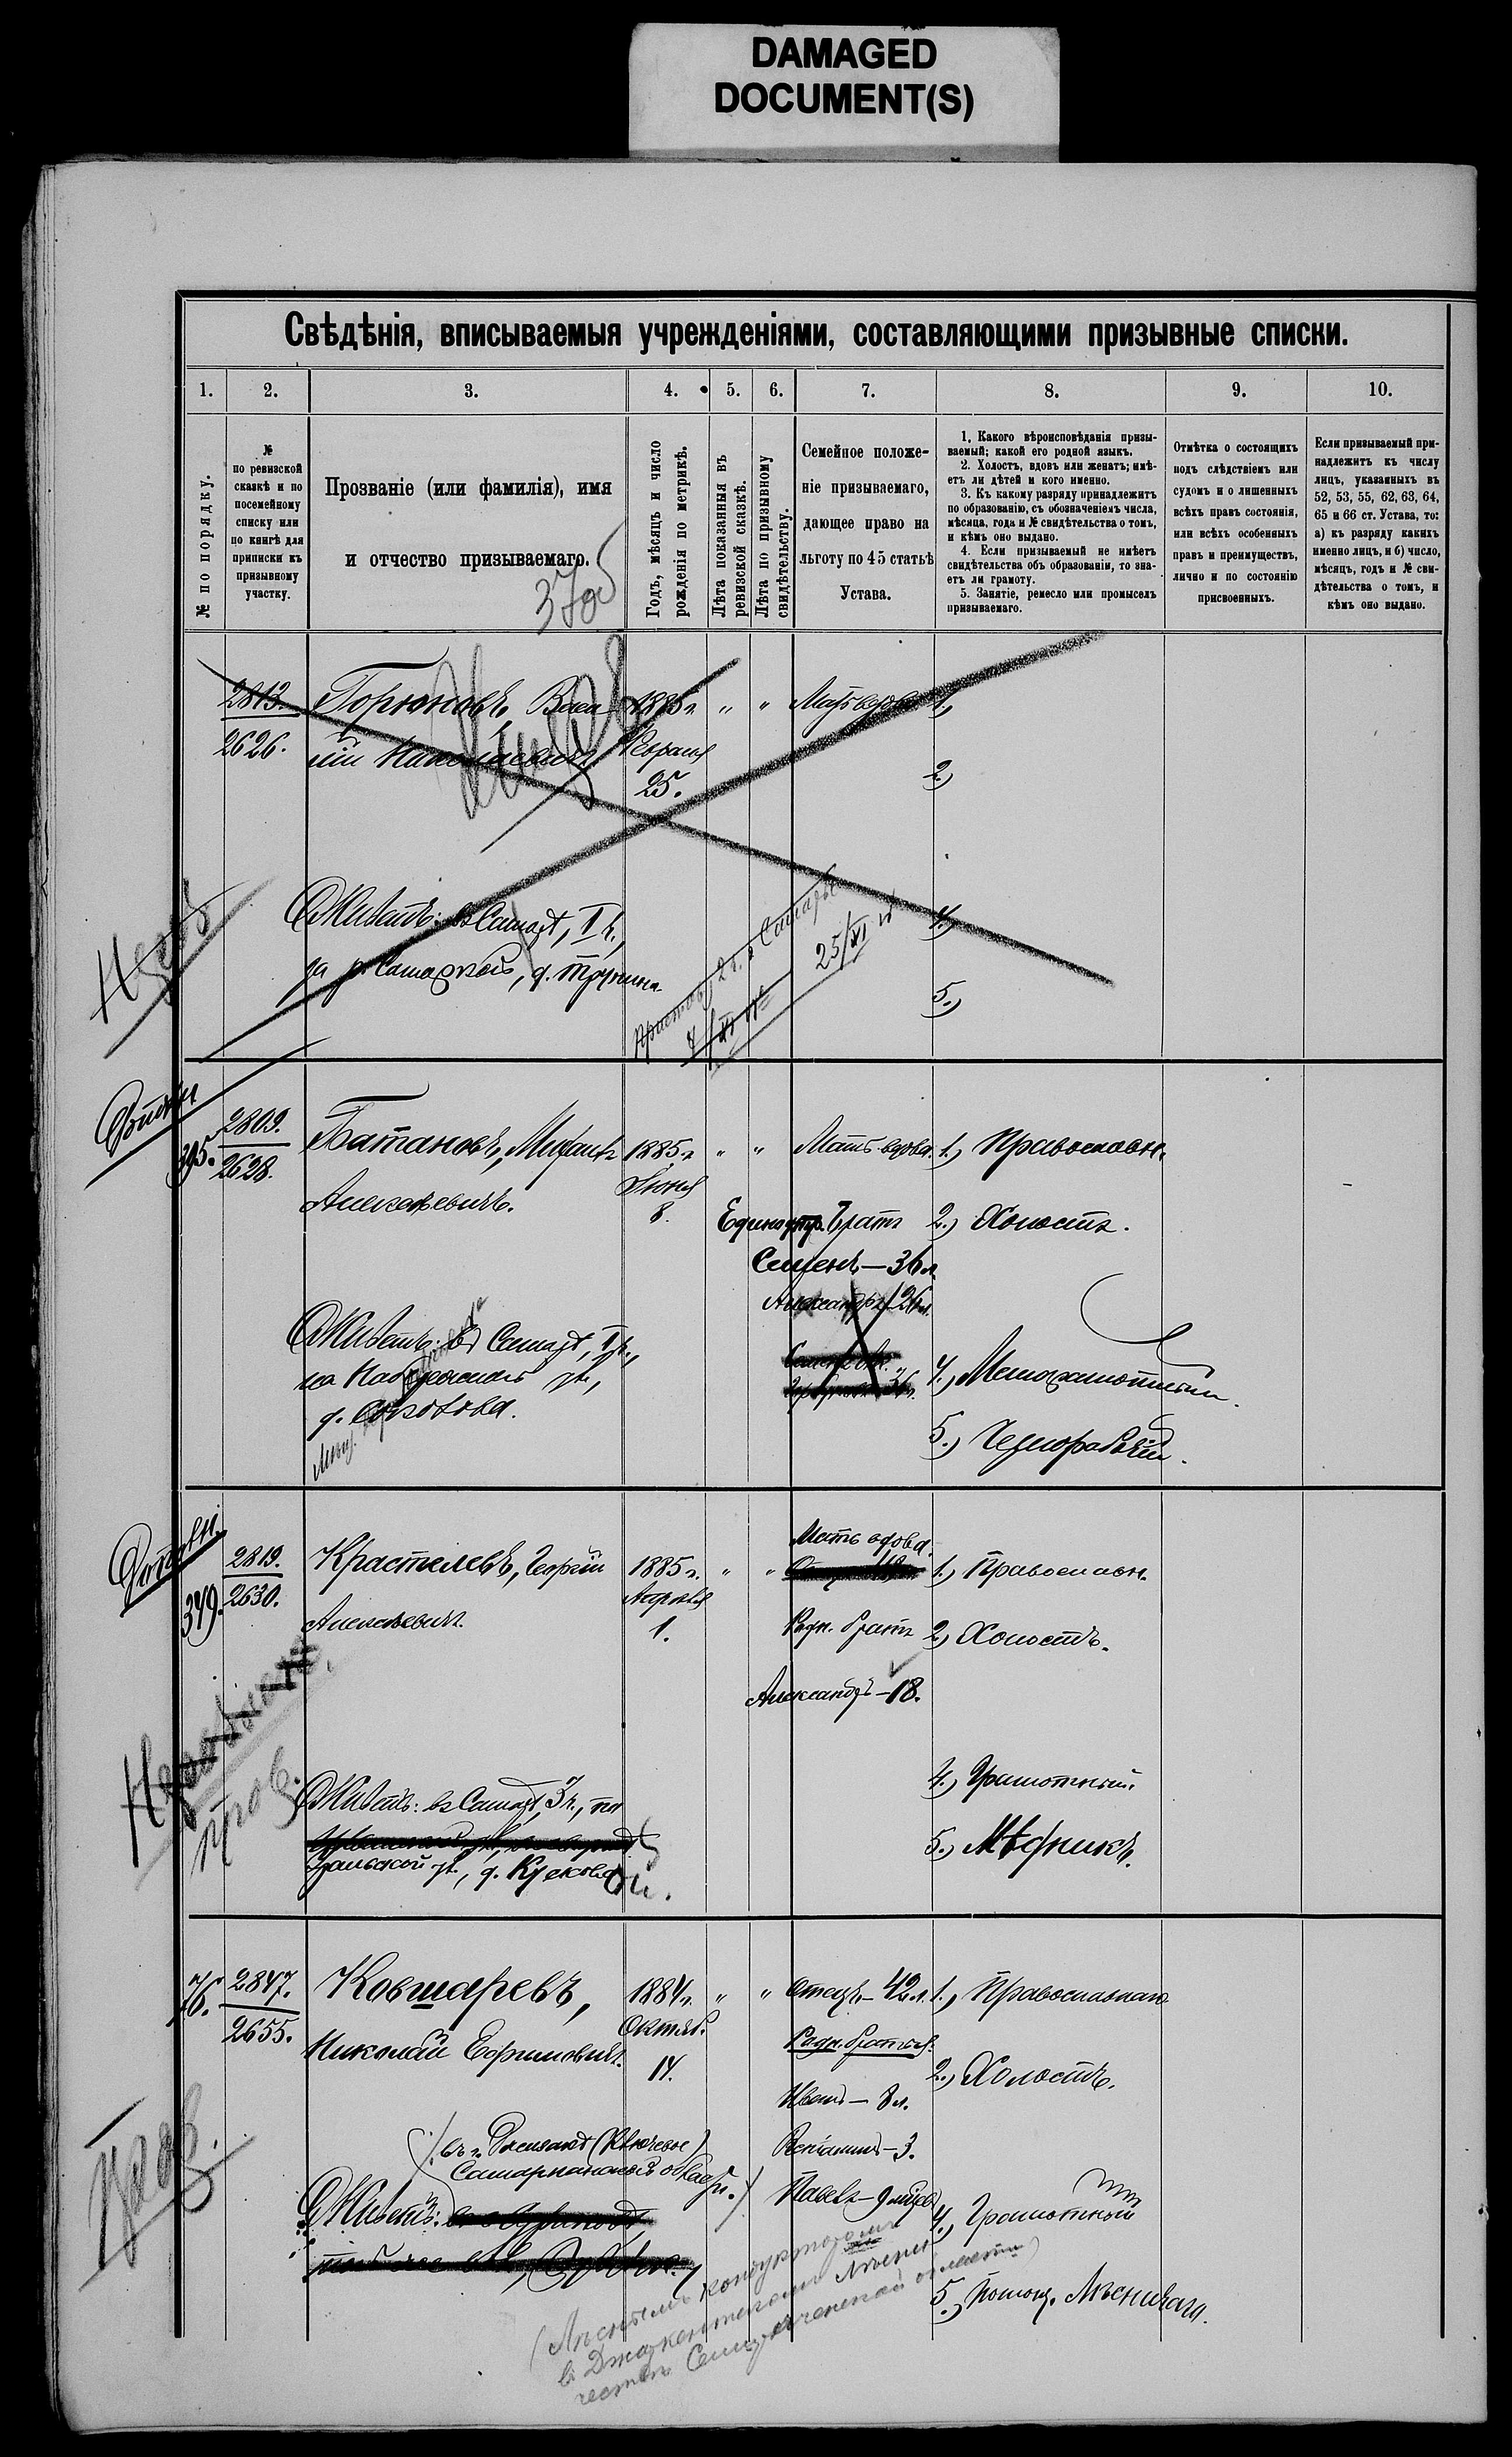 DAMAGED
DOCUMENT(S)
Свѣдѣнія, вписываемыя учрежденіями, составляющими призывные списки.
1. 2. 3. 4. 5. 6. 7. 8. 9. 10.
№ по порядку.
№
по ревизской
сказкѣ и по
посемейному
списку или
по книгѣ для
приписки къ
призывному
участку.
Прозваніе (или фамилія), имя
и отчество призываемаго.
Годъ, мѣсяцъ и число
рожденія по метрикѣ.
Лѣта показанныя въ
ревизской сказкѣ.
Лѣта по призывному
свидѣтельству.
Семейное положе-
ніе призываемаго,
дающее право на
льготу по 45 статьѣ
Устава.
1. Какого вѣроисповѣданія призы-
ваемый; какой его родной языкъ.
2. Холостъ, вдовъ или женатъ; имѣ-
етъ ли дѣтей и кого именно.
3. Къ какому разряду принадлежитъ
по образованію, съ обозначеніемъ числа,
мѣсяца, года и № свидѣтельства о томъ,
и кѣмъ оно выдано.
4. Если призываемый не имѣетъ
свидѣтельства объ образованіи, то зна-
етъ ли грамоту.
5. Занятіе, ремесло или промыселъ
призываемаго.
Отмѣтка о состоящихъ
подъ слѣдствіемъ или
судомъ и о лишенныхъ
всѣхъ правъ состоянія,
или всѣхъ особенныхъ
правъ и преимуществъ,
лично и по состоянію
присвоенныхъ.
Если призываемый при-
надлежитъ къ числу
лицъ, указанныхъ въ
52, 53, 55, 62, 63, 64,
65 и 66 ст. Устава, то:
а) къ разряду какихъ
именно лицъ, и б) число,
мѣсяцъ, годъ и № сви-
дѣтельства о томъ, и
кѣмъ оно выдано.
2813.
2626.
Горюновъ, Васи-
лій Николаевичъ
1885 г.
Февраля
25.
" "
Мать вдова
1.)
2.)
4.)
5.)
Живетъ: въ Самарѣ, II ч.,
за р. Самаркой, д. Трунина
25/XI
395.
2809.
2628.
Батановъ, Михаилъ
Алексѣевичъ.
1885 г.
Іюня
8.
" "
Мать вдова.
Братъ
Семенъ — 36 л.
Александръ 26 л.
1.) Православн.
2.) Холостъ.
4.) Малограмотный.
5.) Чернорабочій.
Живетъ: въ Самарѣ, II ч.,
на Набережной ул.,
д. Соколова.
349.
2819.
2630.
Крастелевъ, Георгій
Алексѣевичъ.
1885 г.
Апрѣля
1.
" "
Мать вдова.
Родн. братъ
Александръ — 18.
1.) Православн.
2.) Холостъ.
4.) Грамотный.
5.) Мѣдникъ.
Живетъ: въ Самарѣ, 3 ч., по
Уральской ул., д. Крековой.
76.
2847.
2655.
Ковшаревъ,
Николай Ефимовичъ.
1884 г.
Октяб.
14.
" "
Отецъ — 42 л.
Родн. братья:
Иванъ — 8 л.
Веніаминъ — 3.
Павелъ — 9 мѣсяц.
1.) Православнаго
2.) Холостъ.
4.) Грамотный
5.) Помощ. Лѣсничаго.
Самаркандской област.)
Живетъ:
(Лѣснымъ кондукторомъ
въ Джаркентскомъ лѣсни-
чествѣ Семирѣченской области)